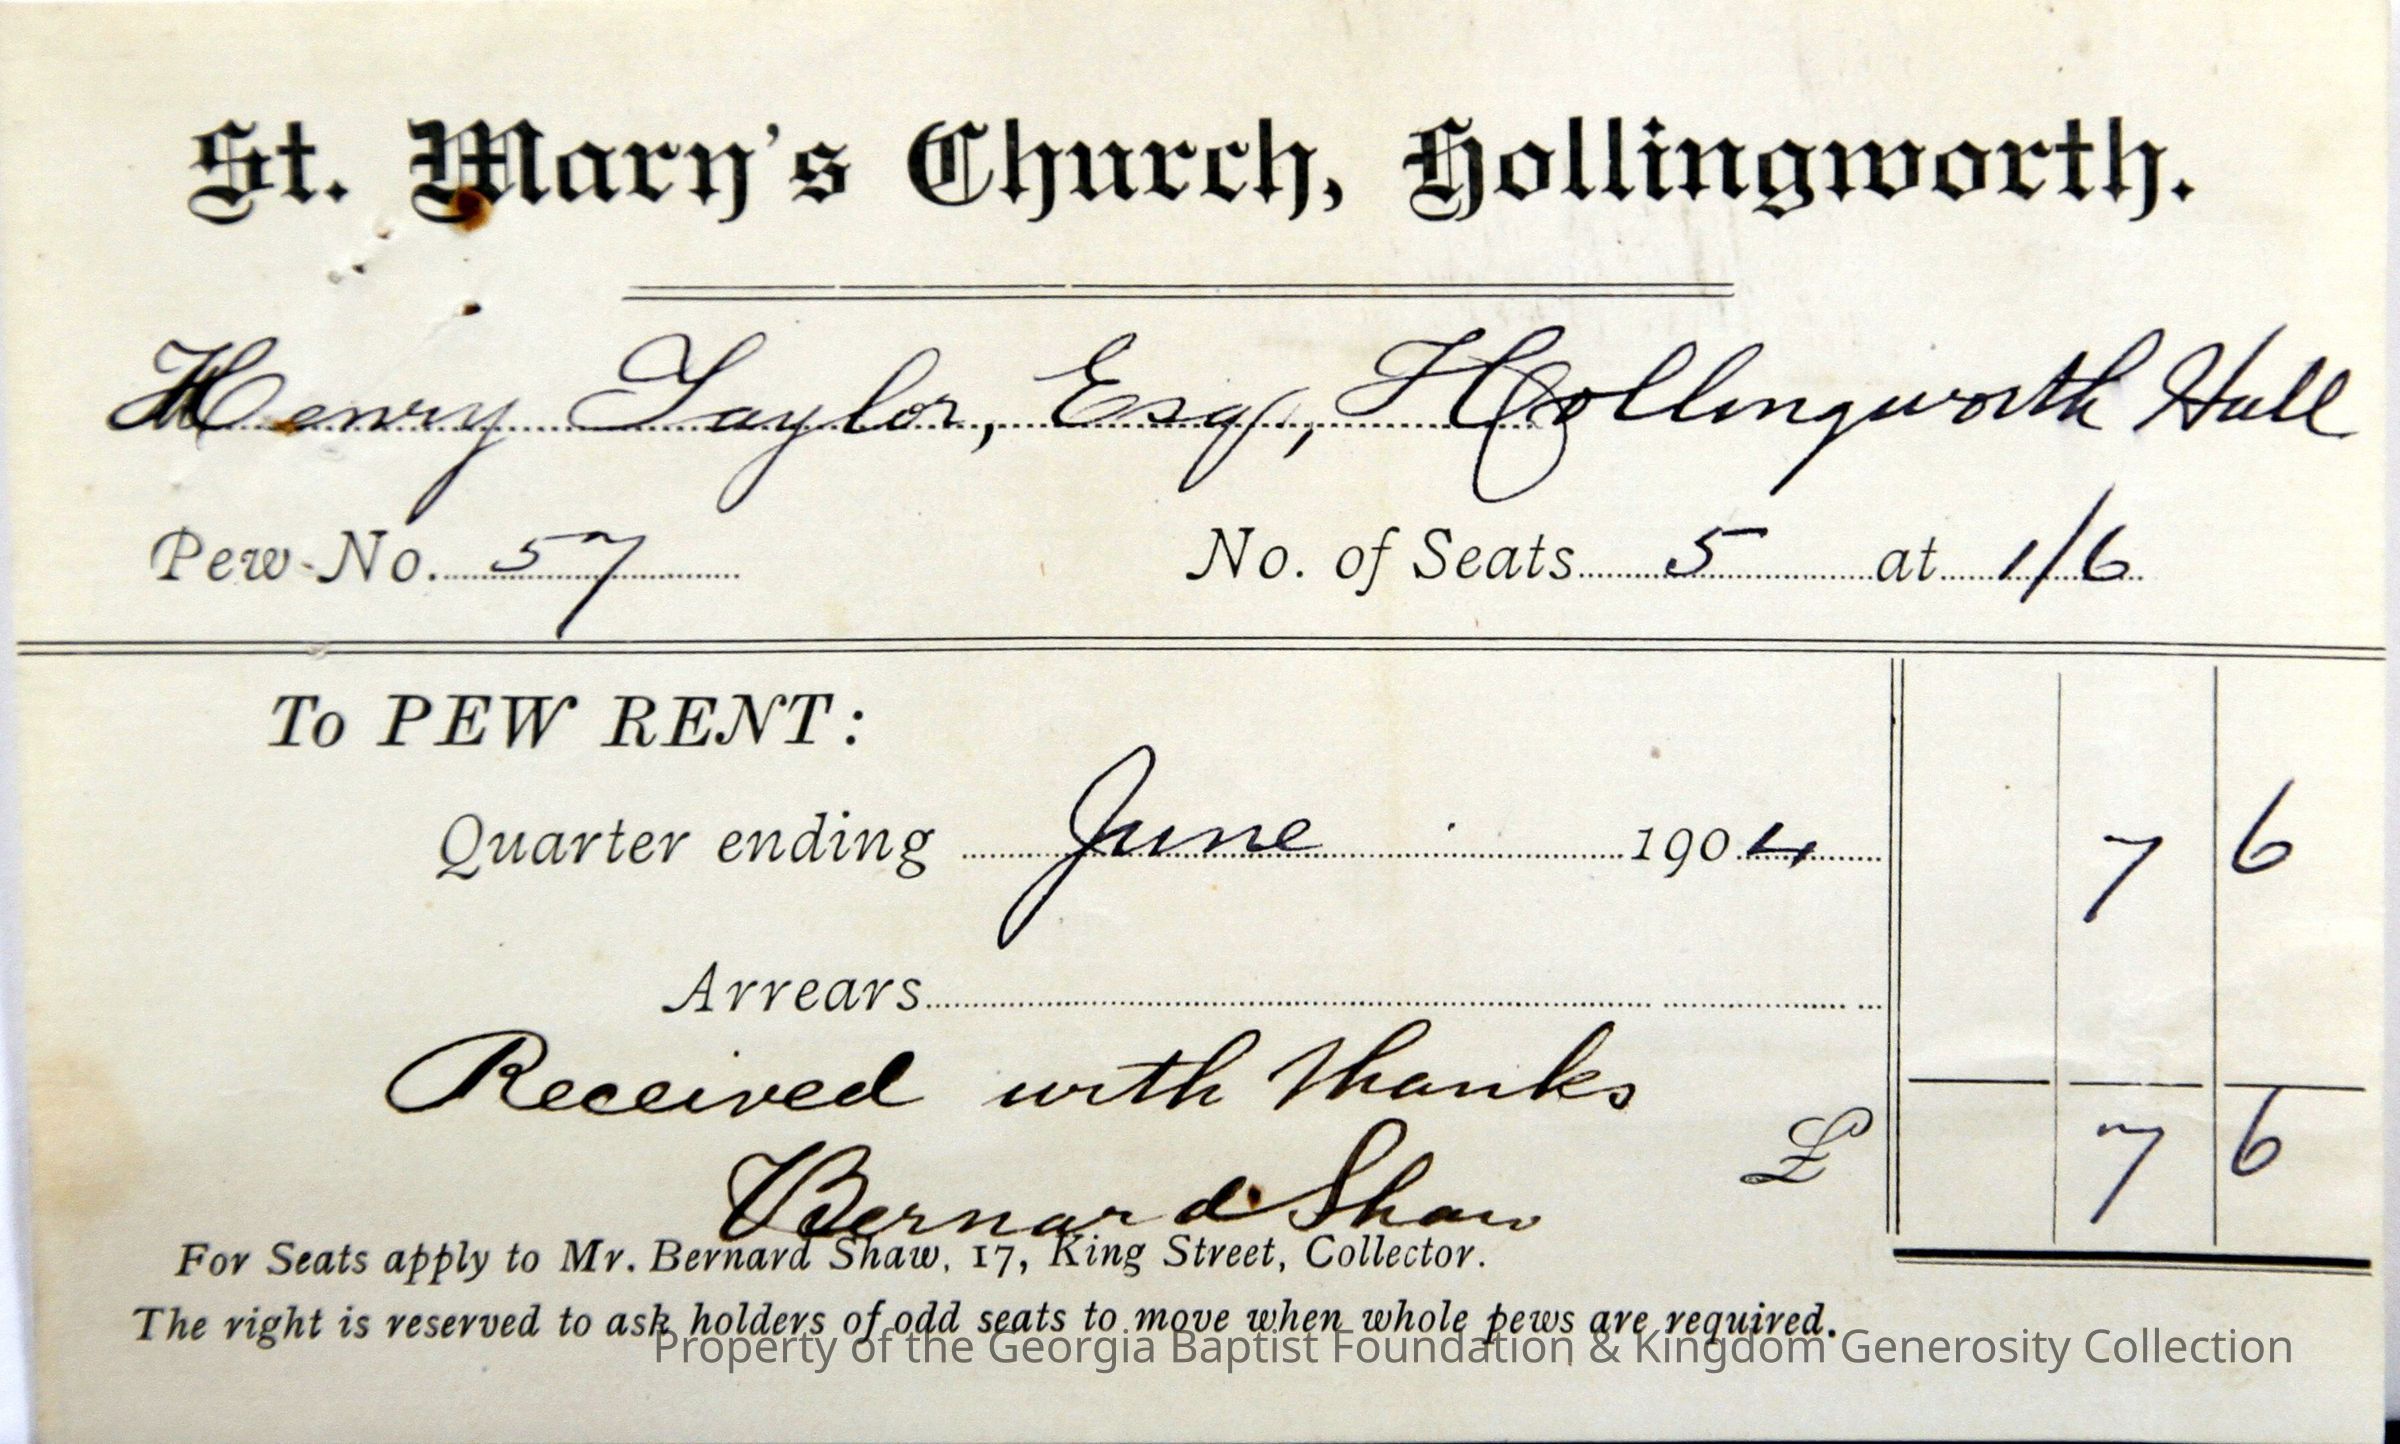 St. Mary's Church, Hollingworth.
Henry Taylor, Esq, Hollingworth Hall
Pew No. 57 No. of Seats 5 at 1/6
To PEW RENT:
Quarter ending June 1904 7 6
Arrears
Received with thanks
£ 7 6
Bernard Shaw
For Seats apply to Mr. Bernard Shaw, 17, King Street, Collector.
The right is reserved to ask holders of odd seats to move when whole pews are required.
Property of the Georgia Baptist Foundation & Kingdom Generosity Collection